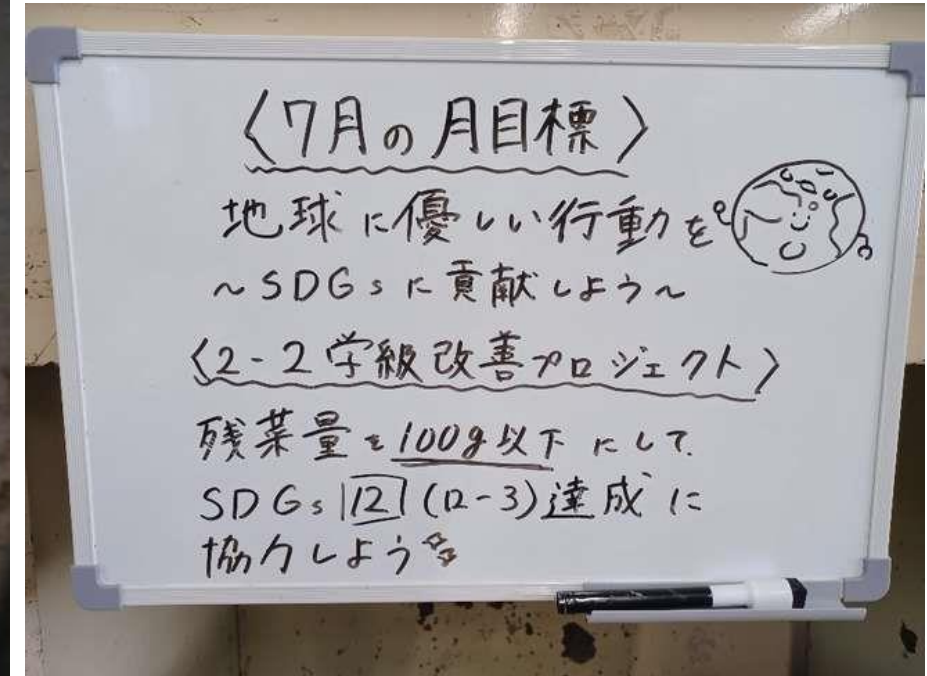 〈7月の月目標〉
地球に優しい行動を
~SDGsに貢献しよう~
〈2-2学級改善プロジェクト〉
残菜量を100g以下にして
SDGs 12 (12-3)達成に
協力しよう